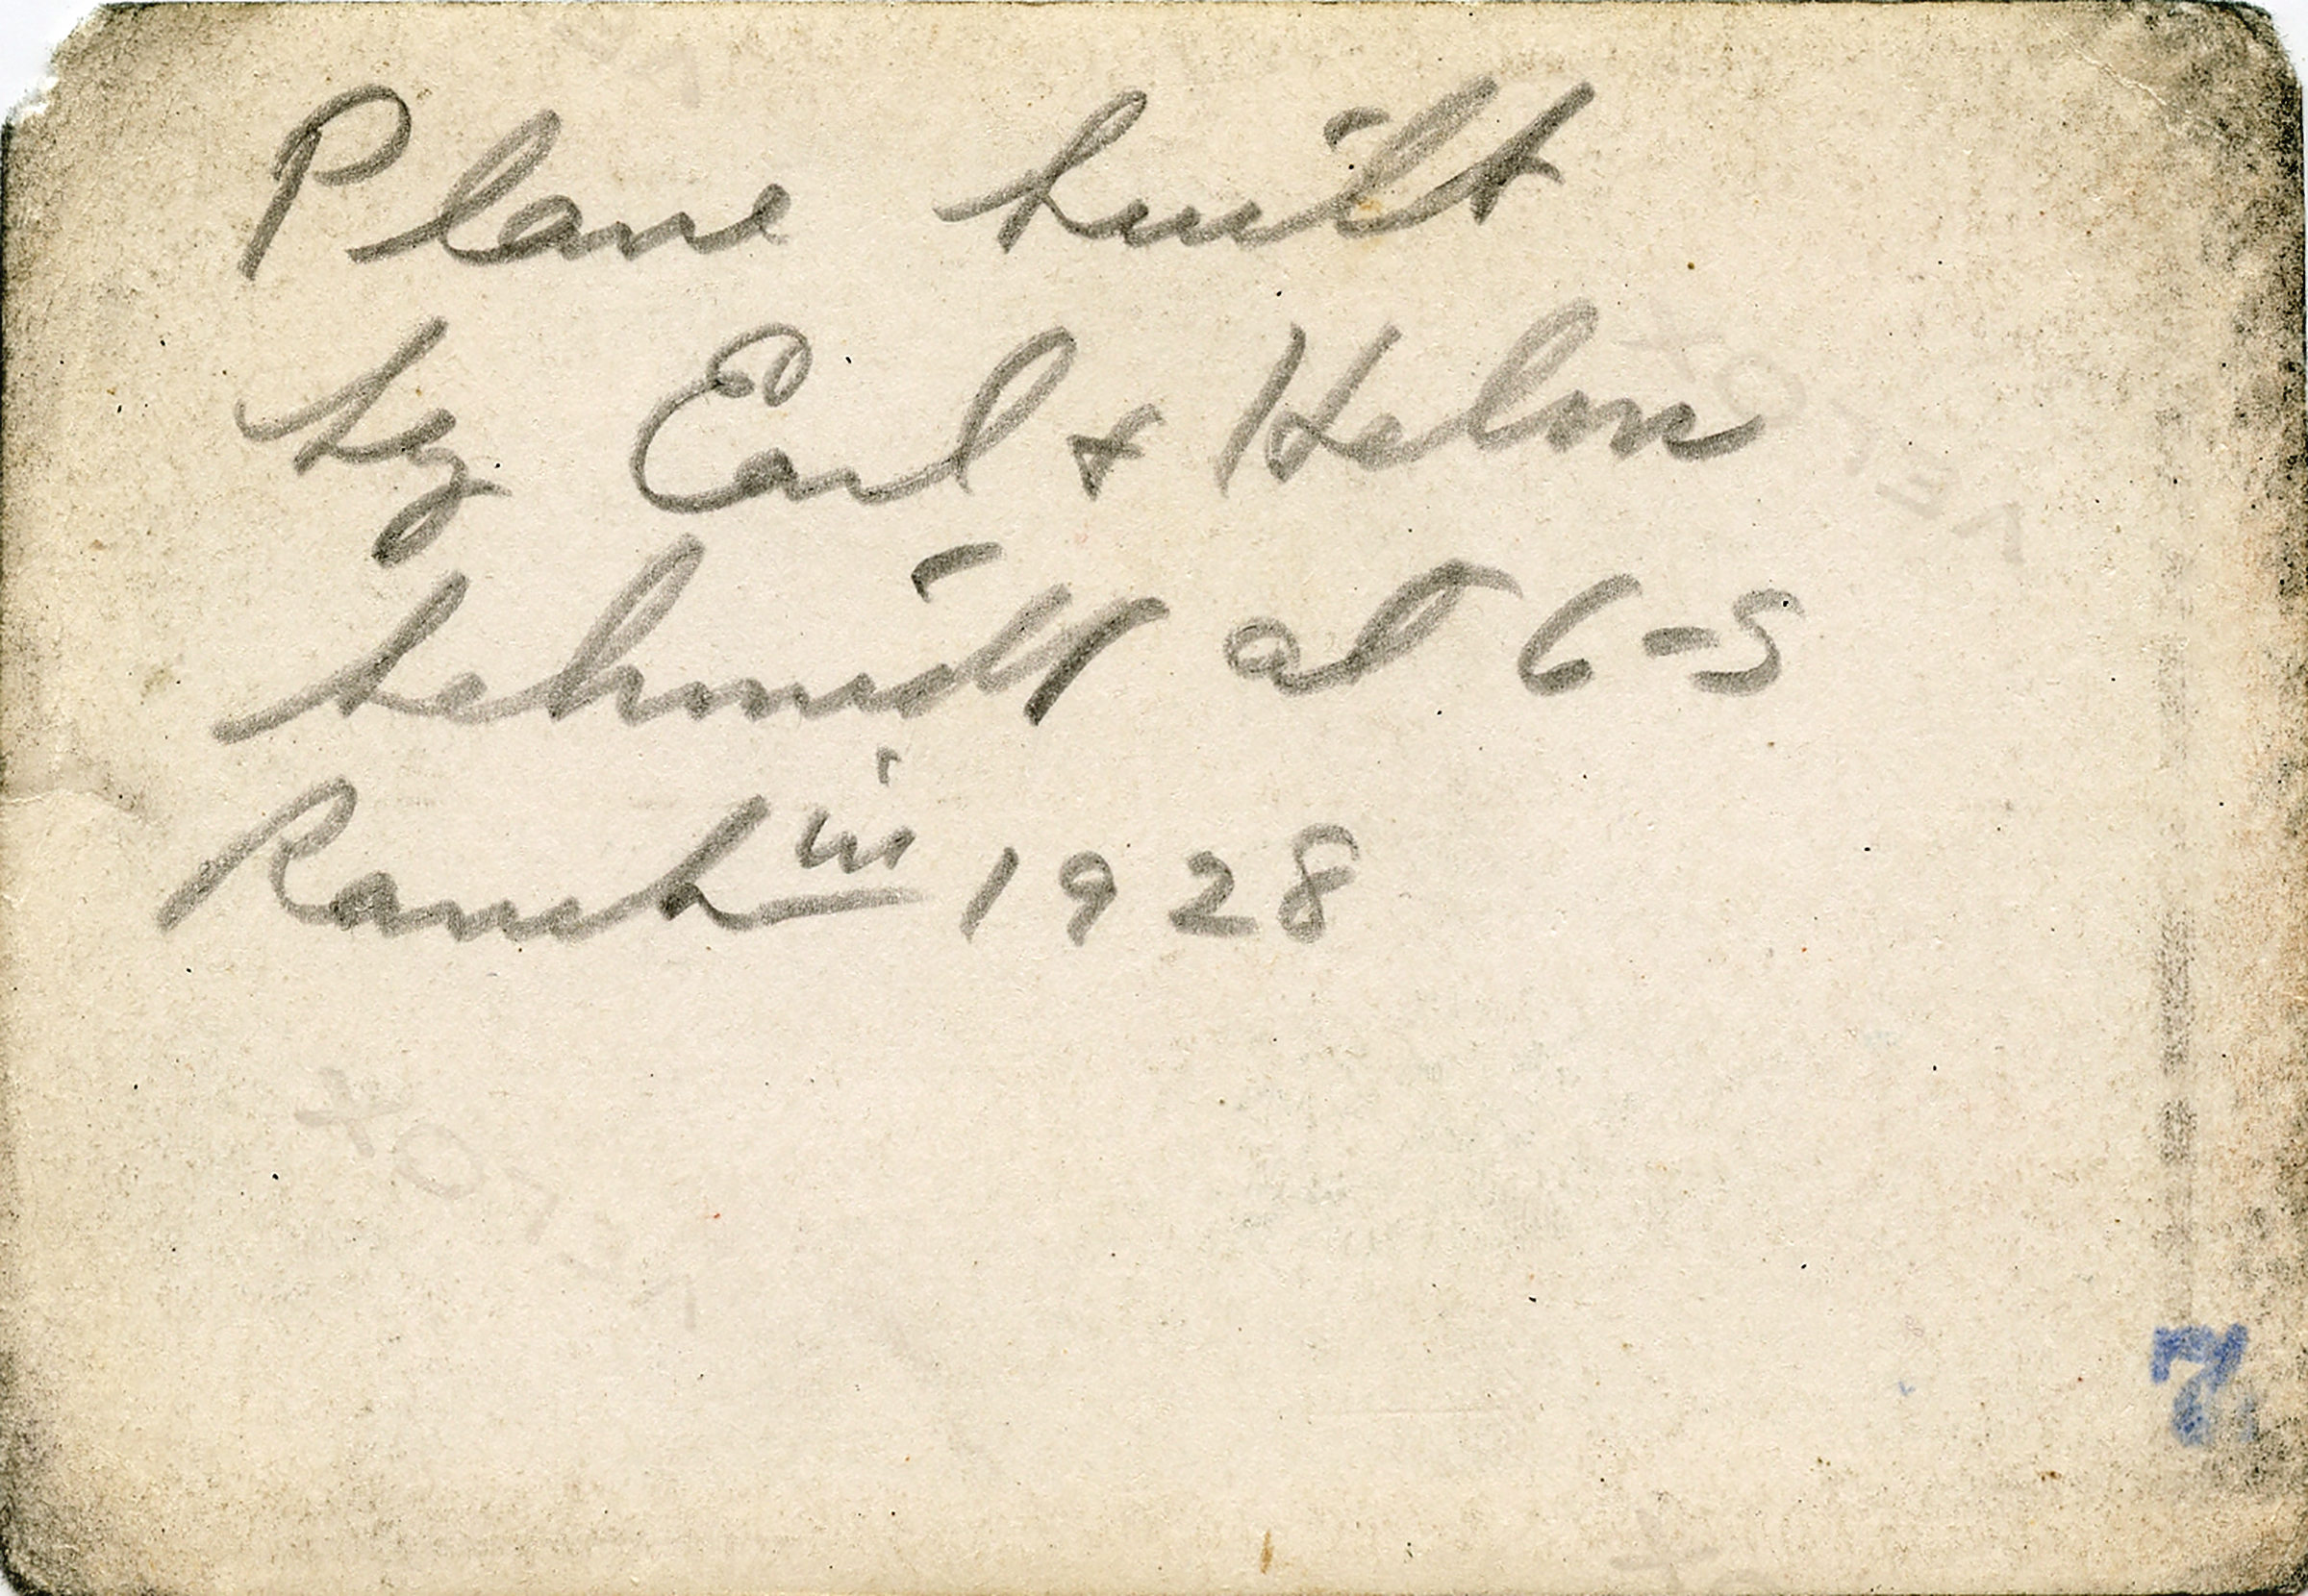 Plane built
by Earl & Helm
Schmidt at C-S
Ranch in 1928
7